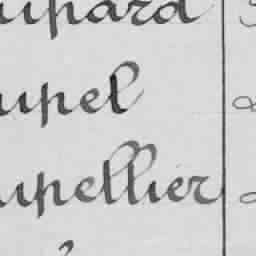 upard
upel
upellier